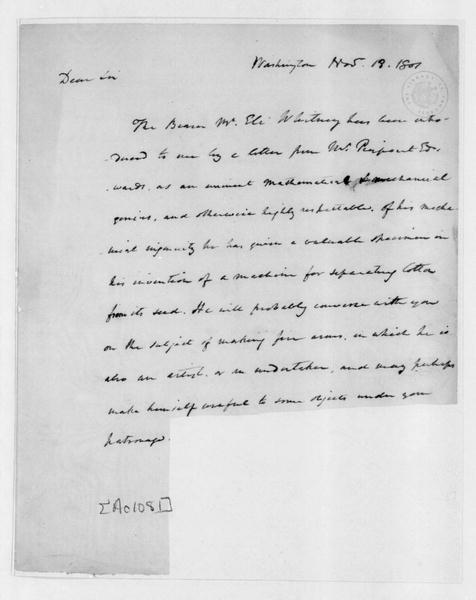 Washington Nov. 13. 1801
Dear Sir
The Bearer Mr. Eli Whitney has been intro-
duced to me by a letter from Mr. Pierpont Ed-
wards, as an eminent mathematical & mechanical
genius, and otherwise highly respectable. Of his mecha-
nical ingenuity he has given a valuable specimen in
his invention of a machine for separating Cotton
from its seed. He will probably converse with you
on the subject of making fire arms, in which he is
also an artist, or an undertaker, and may perhaps
make himself useful to some objects under your
patronage.
[Ac1081]